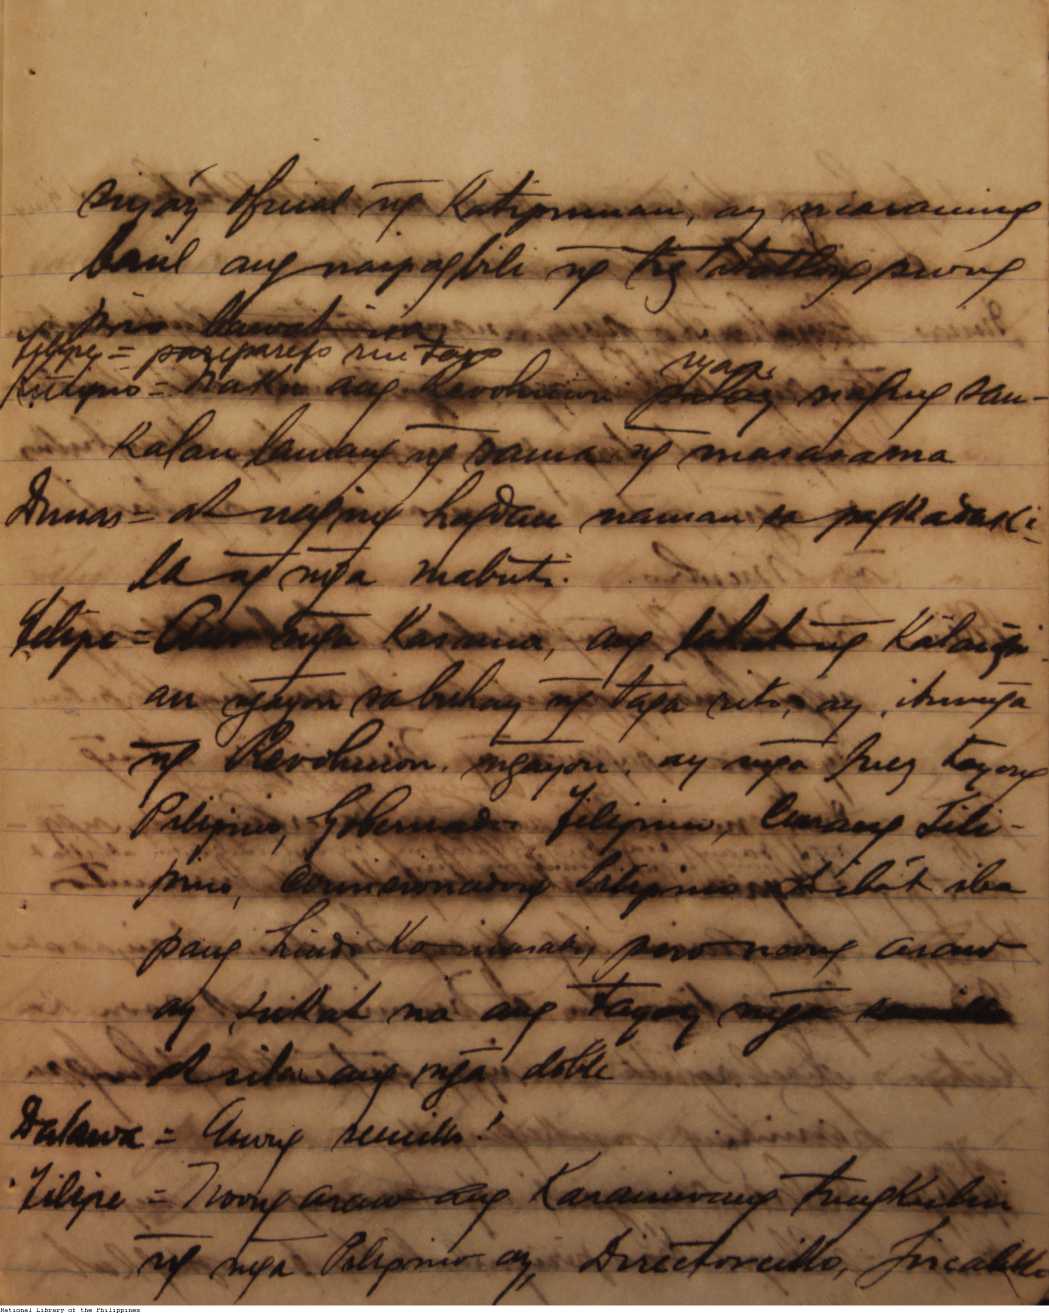 siya'y oficial ng Katipunan, ay maraming
baril ang naipagbili ng tig tatatlong puong
piso bawat isa
Filipe = parepareho rin tayo
= Naku ang Revolucion niya palay naging san-
kalan lamang ng sama ng masasama
Dimas = at naging hagdan naman sa pagkadaki-
la ng mga mabuti.
Filipe = mga kasama, ang lahat ng
an ngayon sa buhay ng taga rito, ay, ibunga
ng Revolucion. ngayon, ay mga Juez tayong
Pilipino, Gobernador Filipino, Curang Fili-
pino, comisionadong Filipino at ibá't iba
pang hindi ko masabi, pero noong araw
ay sukat na ang tayoy mga semillo
at sila ang mga doble
Dalawa = Anong semillo!
Filipe = Noong araw ang Karaniwang tungkulin
ng mga Pilipino ay, Directorcillo, Fiscalillo
National Library of the Philippines